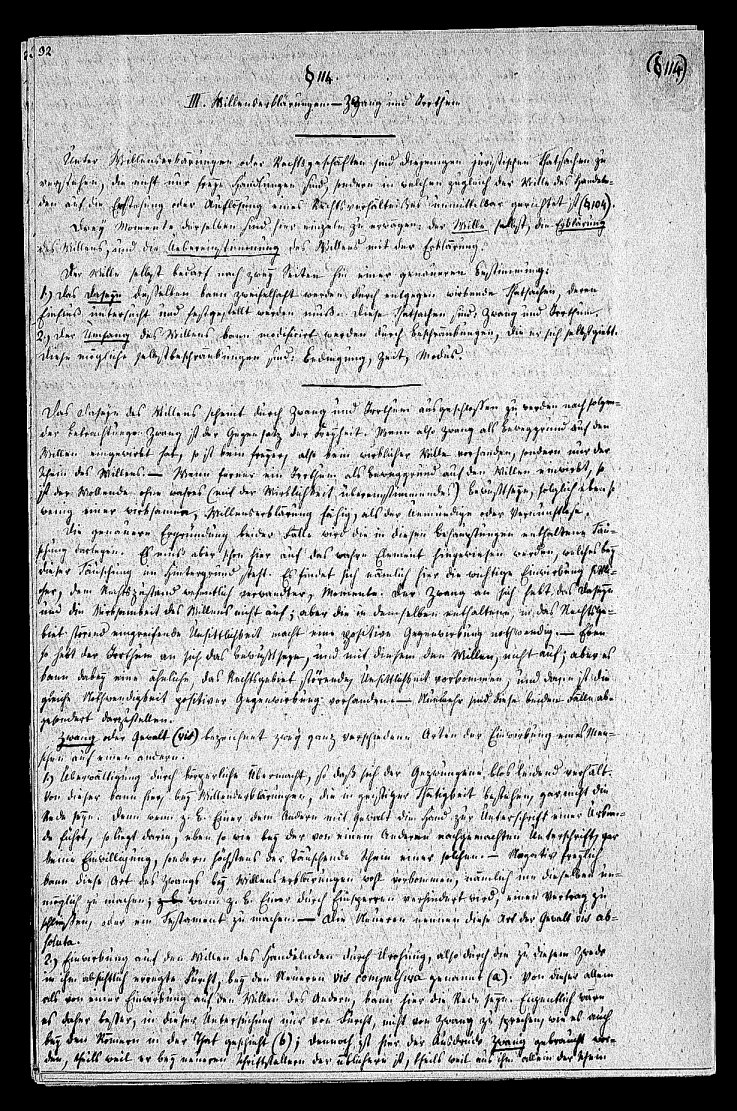 32
§ 114.
(§ 114)
III. Willenserklärungen. – Zwang und Irrthum
Unter Willenserklärungen oder Rechtsgeschäften sind diejenigen juristischen Thatsachen zu
verstehen, die nicht nur freye Handlungen sind, sondern in welchen zugleich der Wille des Handeln-
den auf die Entstehung oder Auflösung eines Rechtsverhältnisses unmittelbar gerichtet ist (§ 104).
Drey Momente derselben sind hier einzeln zu erwägen: der Wille selbst, die Erklärung
des Willens, und die Uebereinstimmung des Willens mit der Erklärung.
Der Wille selbst bedarf nach zwey Seiten hin einer genaueren Bestimmung:
1.) Das Daseyn desselben kann zweifelhaft werden durch entgegen wirkende Thatsachen, deren
Einfluß untersucht und festgestellt werden muß. Diese Thatsachen sind: Zwang und Irrthum.
2.) Der Umfang des Willens kann modificirt werden durch Beschränkungen, die er sich selbst giebt.
Diese mögliche Selbstbeschränkungen sind: Bedingung, Zeit, Modus.
Das Daseyn des Willens scheint durch Zwang und Irrthum ausgeschlossen zu werden nach folgen-
der Betrachtung. Zwang ist der Gegensatz der Freyheit. Wenn also Zwang als Beweggrund auf den
Willen eingewirkt hat, so ist kein freyer, also kein wirklicher Wille vorhanden, sondern nur der
Schein des Willens. – Wenn ferner ein Irrthum als Beweggrund auf den Willen einwirkt, so
ist der Wollende ohne wahres (mit der Wirklichkeit übereinstimmendes) Bewußtseyn, folglich eben so
wenig einer wirksamen Willenserklärung fähig, als der Unmündige oder Vernunftlose.
Die genauere Ergründung beider Fälle wird die in diesen Behauptungen enthaltene Täu-
schung darlegen. Es muß aber schon hier auf das wahre Element hingewiesen werden, welches bey
dieser Täuschung im Hintergrund steht. Es findet sich nämlich hier die wichtige Einwirkung sittli-
cher, dem Rechtszustand wesentlich verwandter, Momente. Der Zwang an sich hebt das Daseyn
und die Wirksamkeit des Willens nicht auf; aber die in demselben enthaltene, in das Rechtsge-
biet störend eingreifende Unsittlichkeit macht eine positive Gegenwirkung nothwendig. – Eben
so hebt der Irrthum an sich das Bewußtseyn, und mit diesem den Willen, nicht auf; aber es
kann dabey eine ähnliche das Rechtsgebiet störende Unsittlichkeit vorkommen, und dann ist die
gleiche Nothwendigkeit positiver Gegenwirkung vorhanden. – Nunmehr sind diese beiden Fälle ab-
gesondert darzustellen.
Zwang oder Gewalt (vis) bezeichnet zwey ganz verschiedene Arten der Einwirkung eines Men-
schen auf einen andern:
1.) Überwältigung durch körperliche Übermacht, so daß sich der Gezwungene blos leidend verhält.
Von dieser kann hier, bey Willenserklärungen, die in geistiger Thätigkeit bestehen, gar nicht die
Rede seyn. Denn wenn z. B. Einer dem Andern mit Gewalt die Hand zur Unterschrift einer Urkun-
de führt, so liegt darin, eben so wie bey der von einem Anderen nachgemachten Unterschrift, gar
keine Einwilligung, sondern höchstens der täuschende Schein einer solchen. – Negativ freylich
kann diese Art des Zwangs bey Willenserklärungen wohl vorkommen, nämlich um dieselben un-
möglich zu machen; wenn z. B. Einer durch Einsperren verhindert wird, einen Vertrag zu
schließen, oder ein Testament zu machen. – Die Neueren nennen diese Art der Gewalt vis ab-
soluta.
2.) Einwirkung auf den Willen des Handelnden durch Drohung, also durch die zu diesem Zweck
in ihm absichtlich erregte Furcht, bey den Neueren vis compulsiva genannt (a). Von dieser allein
als von einer Einwirkung auf den Willen des Andern, kann hier die Rede seyn. Eigentlich wäre
es daher besser, in dieser Untersuchung nur von Furcht, nicht von Zwang zu sprechen, wie es auch
bey den Römern in der That geschieht (b); dennoch ist hier der Ausdruck Zwang gebraucht wor-
den, theils weil er bey neueren Schriftstellern der üblichere ist, theils weil aus ihm allein der Schein